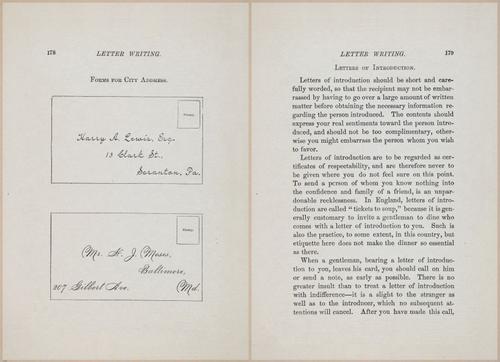 178
LETTER WRITING.
FORMS FOR CITY ADDRESS.
Harry A. Lewis, Esq.
13 Clark St.,
Scranton, Pa.
Mr. H. J. Moses,
Baltimore,
207 Gilbert Ave. Md.
LETTER WRITING. 179
LETTERS OF INTRODUCTION.
Letters of introduction should be short and care-
fully worded, so that the recipient may not be embar-
rassed by having to go over a large amount of written
matter before obtaining the necessary information re-
garding the person introduced. The contents should
express your real sentiments toward the person intro-
duced, and should not be too complimentary, other-
wise you might embarrass the person whom you wish
to favor.
Letters of introduction are to be regarded as cer-
tificates of respectability, and are therefore never to
be given where you do not feel sure on this point.
To send a person of whom you know nothing into
the confidence and family of a friend, is an unpar-
donable recklessness. In England, letters of intro-
duction are called "tickets to soup," because it is gen-
erally customary to invite a gentleman to dine who
comes with a letter of introduction to you. Such is
also the practice, to some extent, in this country, but
etiquette here does not make the dinner so essential
as there.
When a gentleman, bearing a letter of introduc-
tion to you, leaves his card, you should call on him
or send a note, as early as possible. There is no
greater insult than to treat a letter of introduction
with indifference—it is a slight to the stranger as
well as to the introducer, which no subsequent at-
tentions will cancel. After you have made this call,